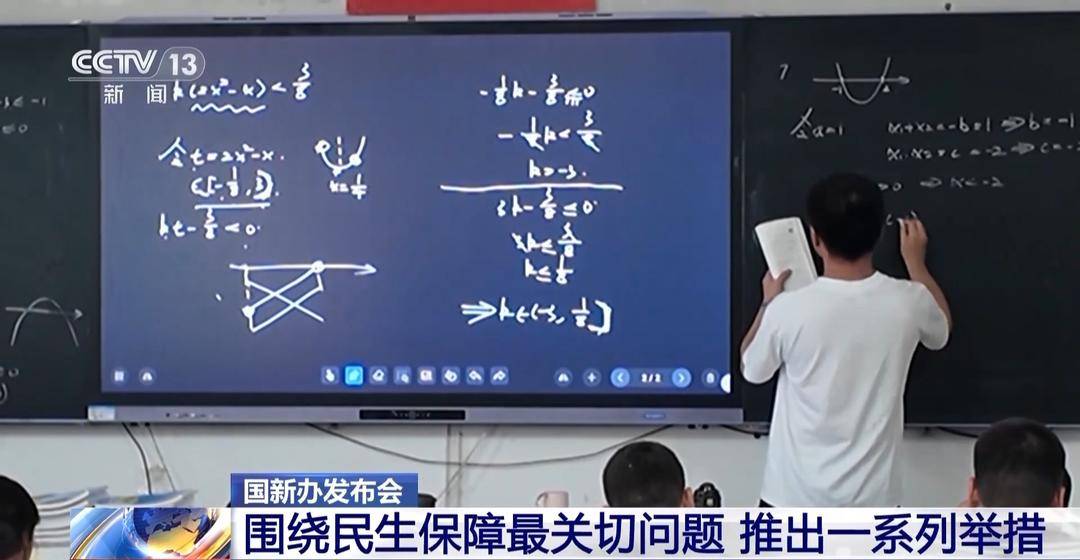 CCTV 13
新闻
k(2x²-x)<3/8
令t=2x²-x.
[-1/8, 3).
kt-3/8<0.
x=1/4
-1/8k-3/8≤0
k>-3.
3k-3/8≤0
3k≤3/8
k≤1/8
⇒k∈(-3, 1/8]
2/2
7
令a=1
x₁+x₂=-b=1⇒b=-1
x₁·x₂=c=-2⇒c=-2
国新办发布会
围绕民生保障最关切问题 推出一系列举措